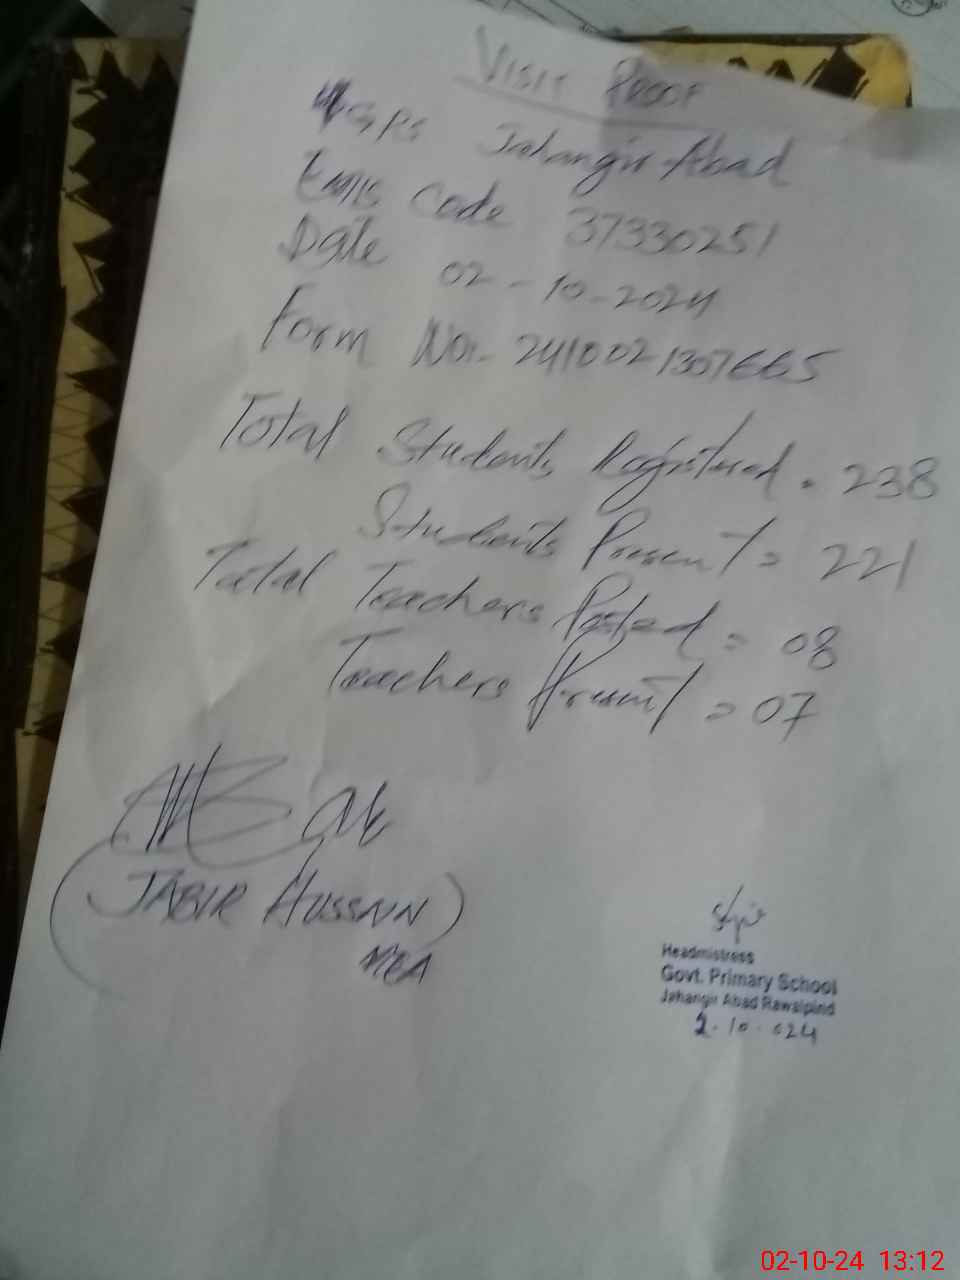 VISIT PROOF
GPS Jahangir Abad
EMIS Code 37330251
Date 02-10-2024
Form No:- 2410021307665
Total Students Registered = 238
Students Present = 221
Total Teachers Posted = 08
Teachers Present = 07
(JABIR HUSSAIN)
MEA
Headmistress
Govt. Primary School
Jahangir Abad Rawalpindi
2.10.024
02-10-24 13:12